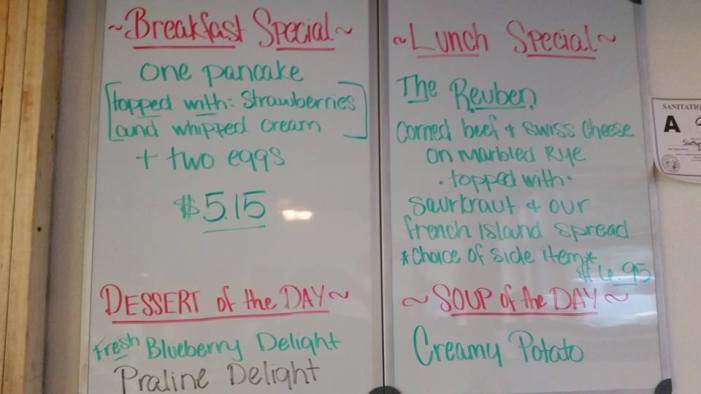 ~Breakfast Special~
one pancake
[topped with: Strawberries
and whipped cream]
+ two eggs
$5.15
DESSERT of the DAY~
Fresh Blueberry Delight
Praline Delight
~Lunch Special~
The Reuben
Corned beef + Swiss Cheese
on marbled Rye
· topped with ·
Saurkraut + our
french Island spread
*Choice of side item*
$6.95
~SOUP of the DAY~
Creamy Potato
SANITATIO
A